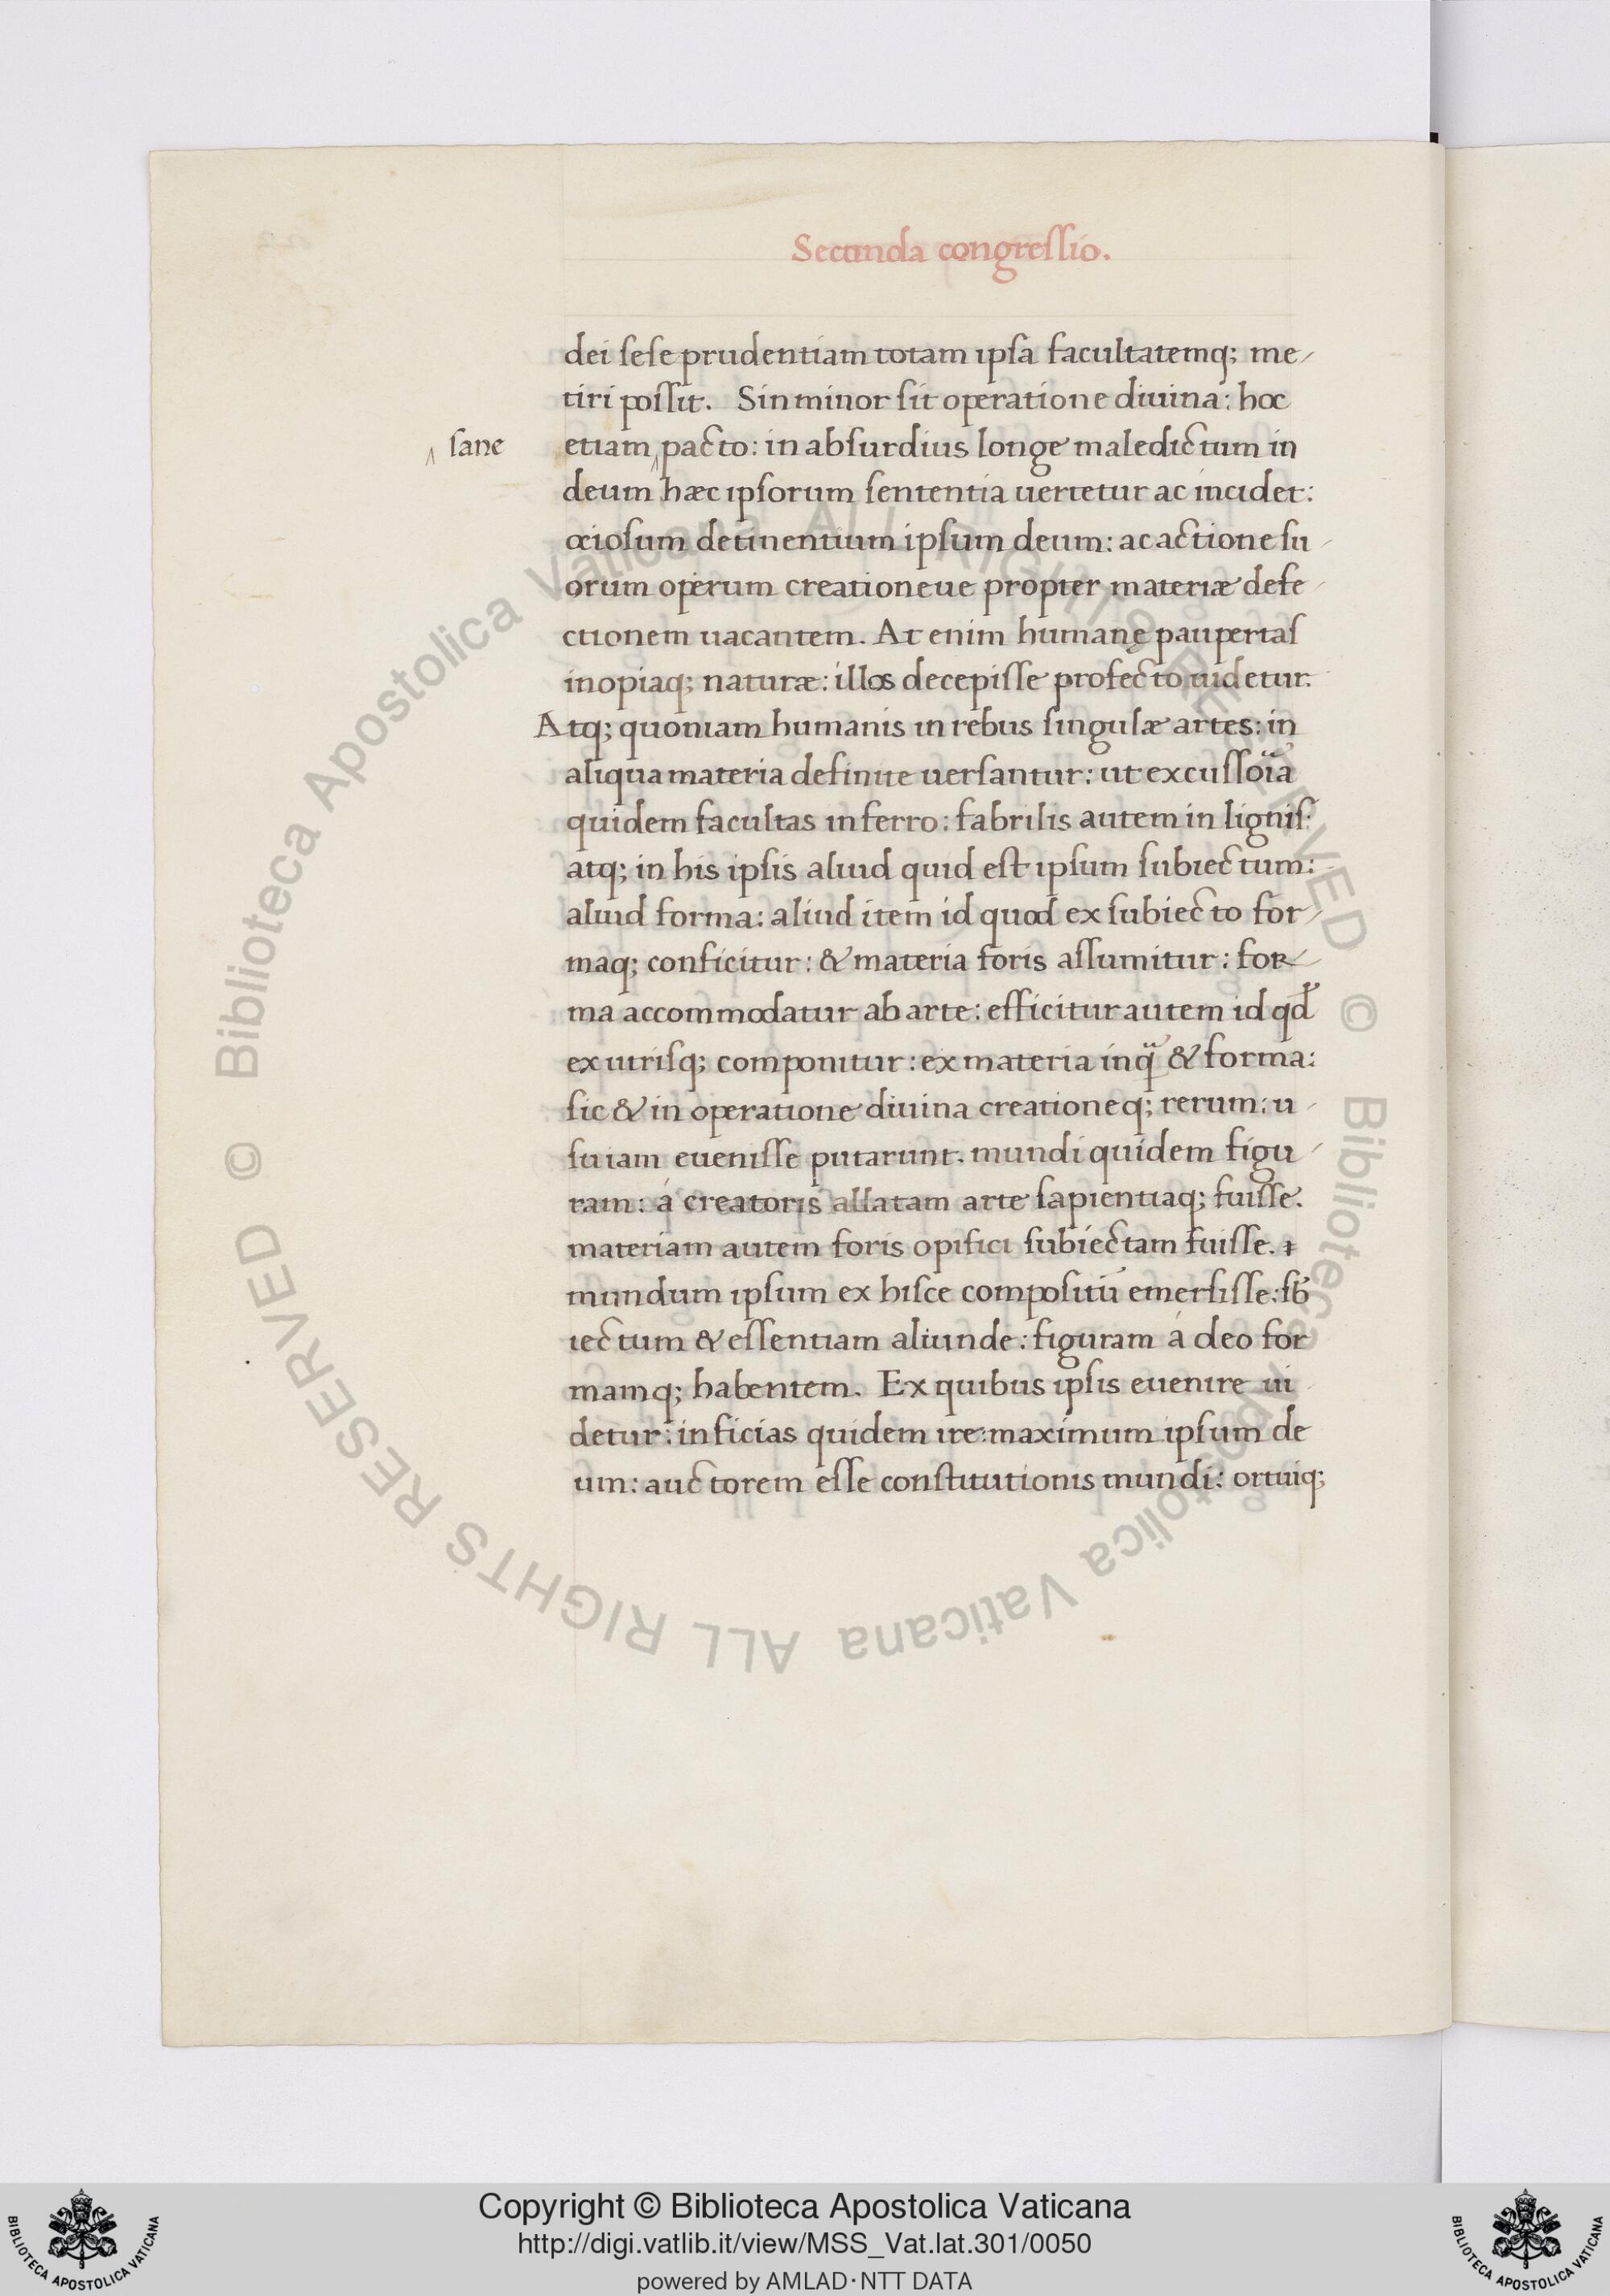 Secunda congreſſio.
dei ſeſe prudentiam totam ipſa facultatemq; me-
tiri poſſit. Sin minor ſit operatione diuina: hoc
sane
etiam pacto: in abſurdius longe maledictum in
deum hæc ipſorum ſententia uertetur ac incidet:
ociosum detinentium ipſum deum: ac actione ſu-
orum operum creationeue propter materiæ defe-
ctionem uacantem. At enim humanę paupertaſ
inopiaq; naturæ: illos decepiſſe profecto uidetur.
Atq; quoniam humanis in rebus ſingulæ artes: in
aliqua materia definite uerſantur: ut excuſſoia
quidem facultas in ferro: fabrilis autem in ligniſ:
atq; in his ipſis aliud quid eſt ipſum ſubiectum:
aliud forma: aliud item id quod ex ſubiecto for-
maq; conficitur: & materia foris aſſumitur: for-
ma accommodatur ab arte: efficitur autem id qd
ex utriſq; componitur: ex materia inq̃ & forma:
ſic & in operatione diuina creationeq; rerum: u-
ſuiam eueniſſe putarunt. mundi quidem figu-
ram: á creatoris allatam arte ſapientiaq; fuiſſe.
materiam autem foris opifici ſubiectam fuiſſe. ⁊
mundum ipſum ex hiſce compoſitũ emerſiſſe: ſb
iectum & eſſentiam aliunde: figuram á deo for
mamq; habentem. Ex quibus ipſis euenire ui
detur: inficias quidem ire: maximum ipſum de
um: auctorem eſſe conſtitutionis mundi: ortuiq;
© Biblioteca Apostolica Vaticana ALL RIGHTS RESERVED © Biblioteca Apostolica Vaticana ALL RIGHTS RESERVED
Copyright © Biblioteca Apostolica Vaticana
http://digi.vatlib.it/view/MSS_Vat.lat.301/0050
powered by AMLAD·NTT DATA
BIBLIOTECA APOSTOLICA VATICANA
BIBLIOTECA APOSTOLICA VATICANA